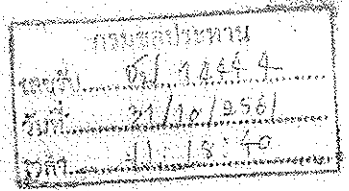 กรมชลประทาน
เลขรับ ชป 14444
วันที่ 31/10/2561
เวลา 11:18:40